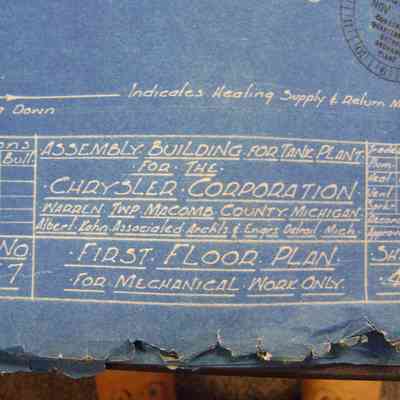 NOV
Indicates Heating Supply & Return M
Down
ons
Bull.
ASSEMBLY BUILDING FOR TANK PLANT
FOR THE
CHRYSLER CORPORATION
WARREN TWP MACOMB COUNTY, MICHIGAN
Albert Kahn Associated Archts & Engrs Detroit, Mich.
NG
7
FIRST FLOOR PLAN
FOR MECHANICAL WORK ONLY.
SH
4